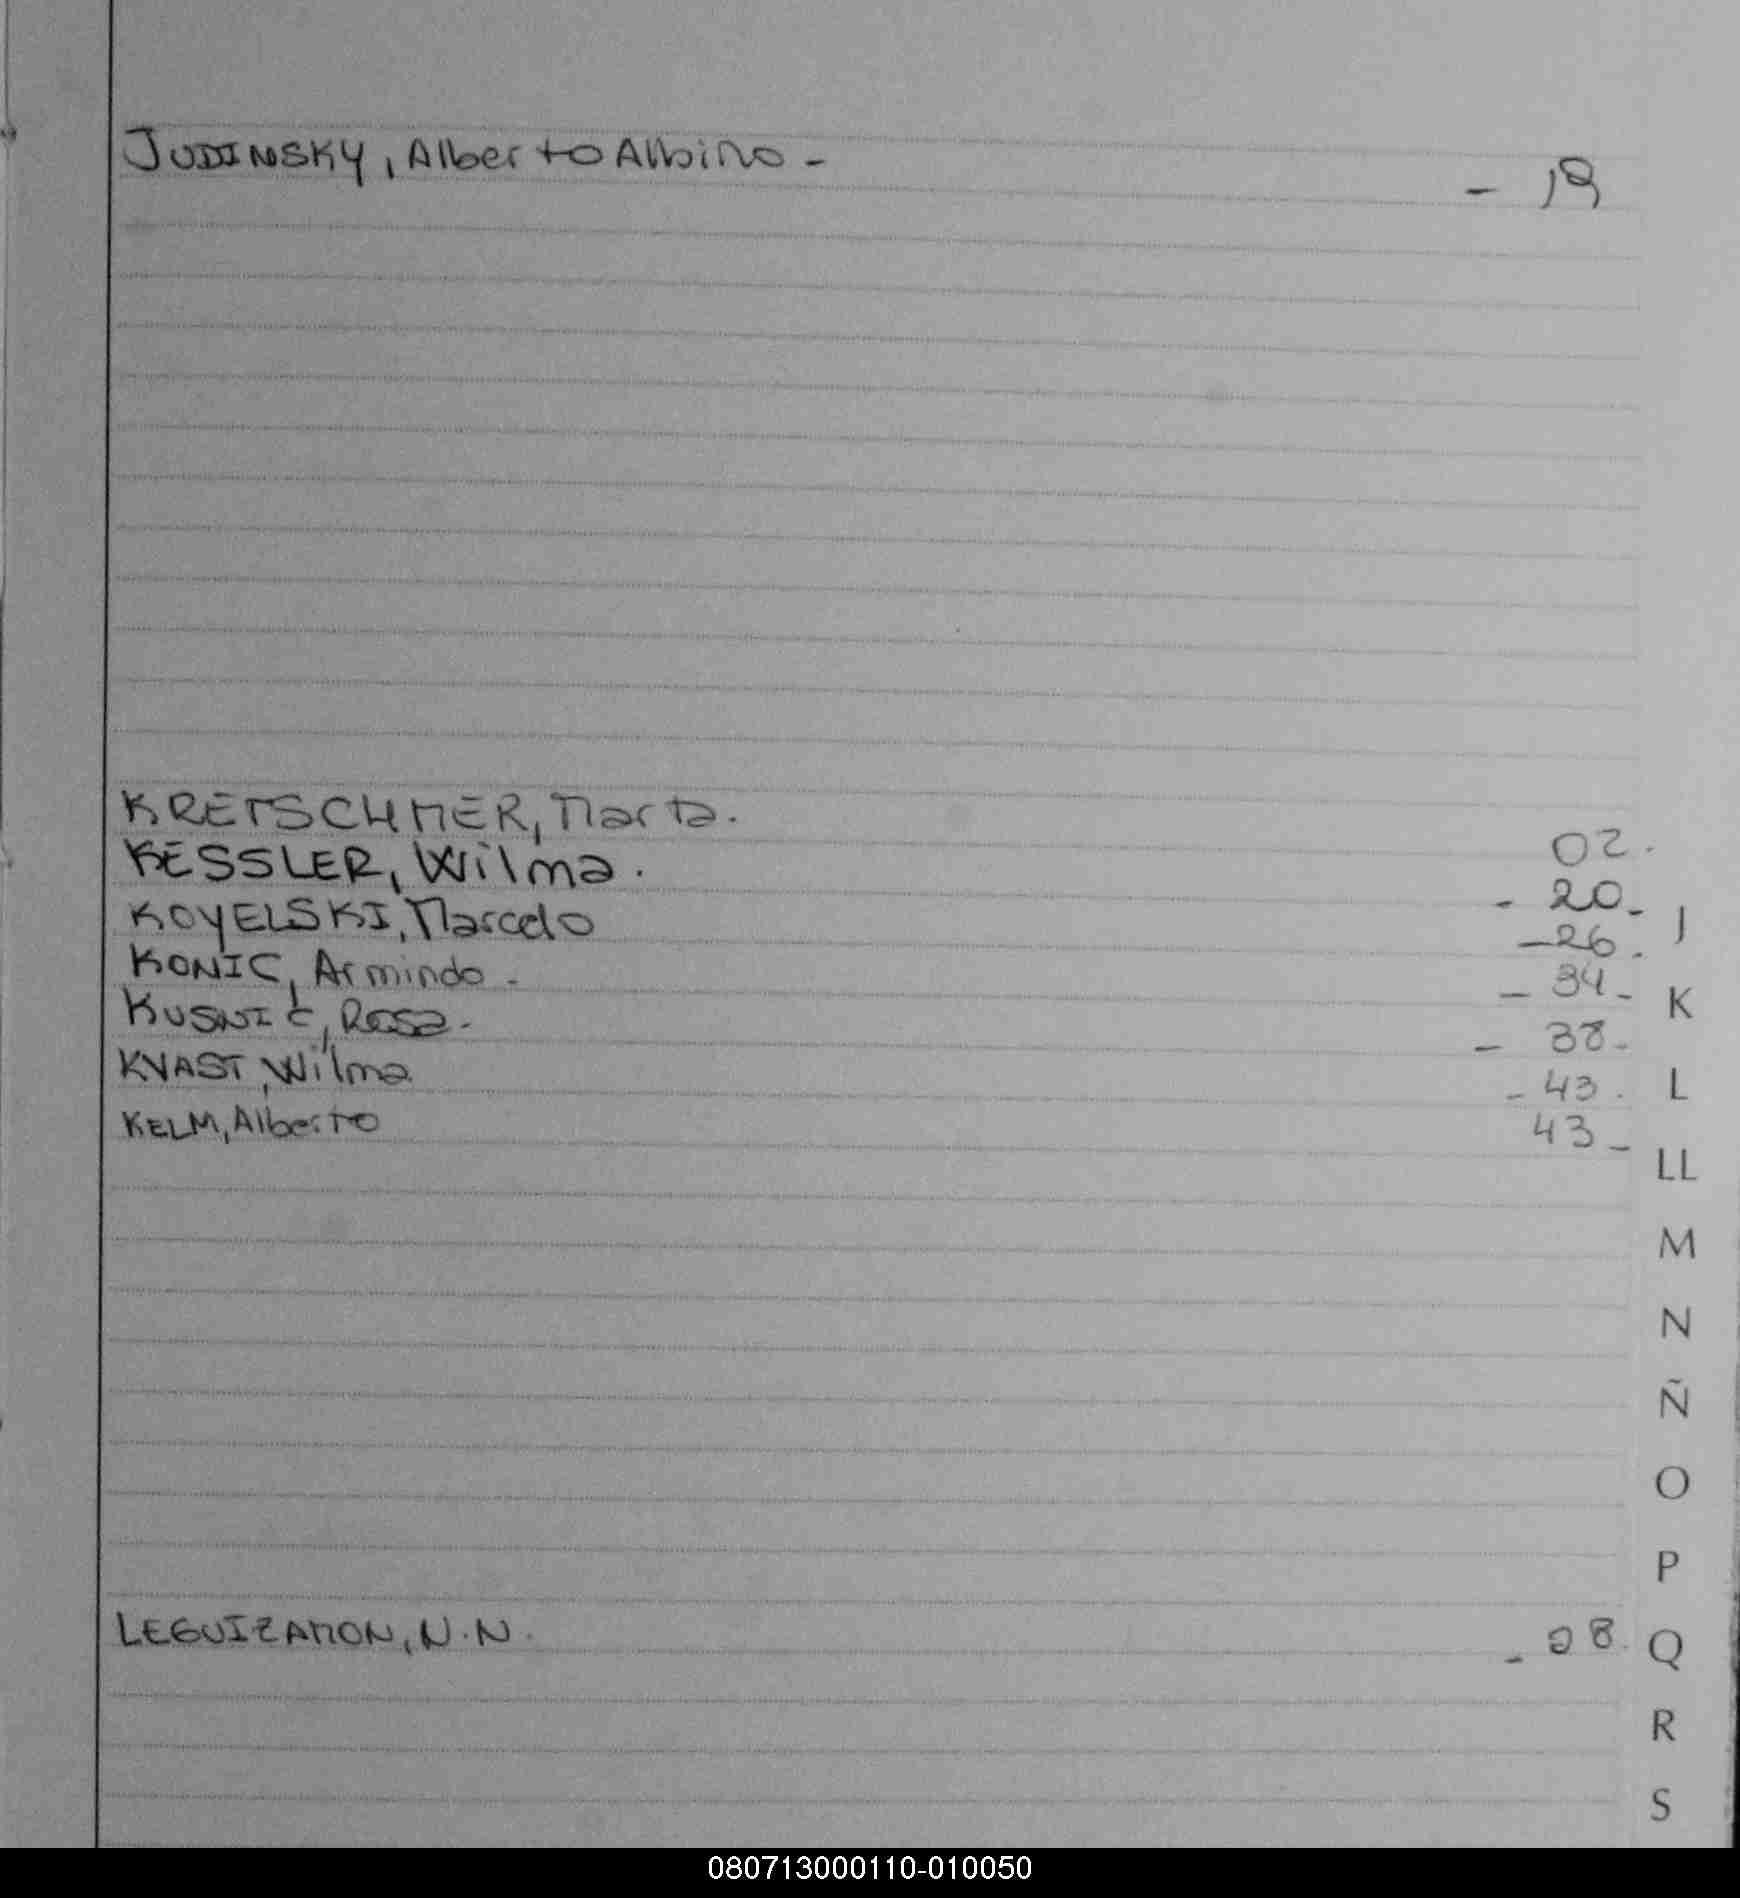 JUDINSKY, Alberto Albino - - 19
KRETSCHMER, Marta. 02.
KESSLER, Wilma. - 20-
KOYELSKI, Marcelo -26.
KONIC, Armindo - - 34-
KUSNIC, Rosa. - 38-
KVAST, Wilma - 43.
KELM, Alberto 43-
LEGUIZAMON, N.N. - 08.
J
K
L
LL
M
N
Ñ
O
P
Q
R
S
080713000110-010050